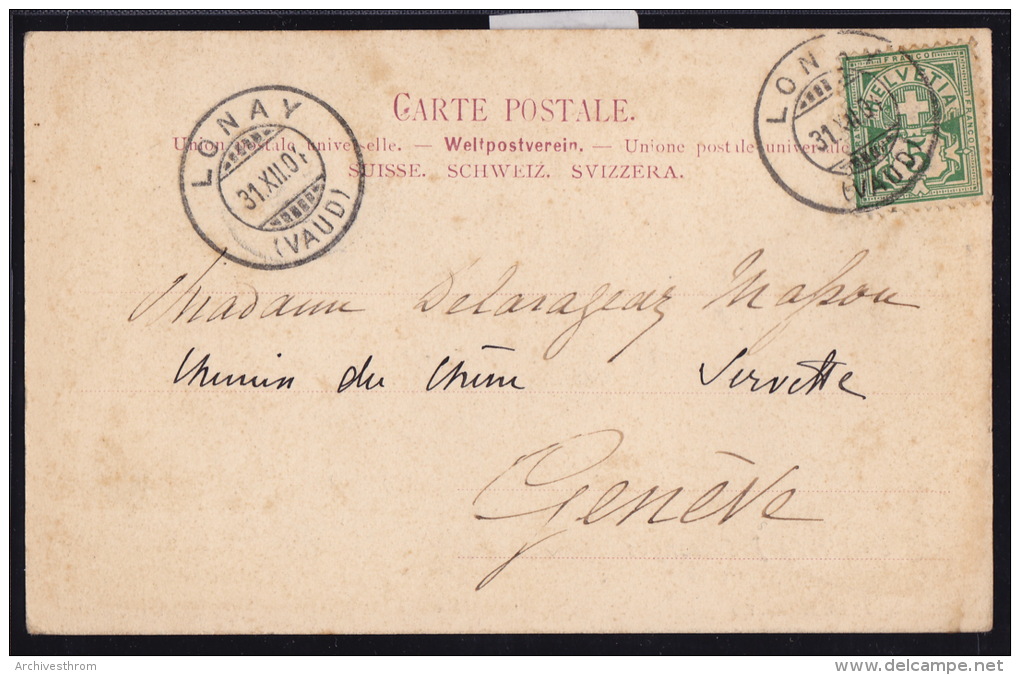 CARTE POSTALE.
Union postale universelle. — Weltpostverein. — Unione postale universale
SUISSE. SCHWEIZ. SVIZZERA.
LONAY
31.XII.01
(VAUD)
LON
31.XII.0
(VAUD)
FRANCO
HELVETIA
FRANCO
5
Madame Delarageaz Masson
Chemin du Chêne Servette
Genève
Archivesthrom
www.delcampe.net